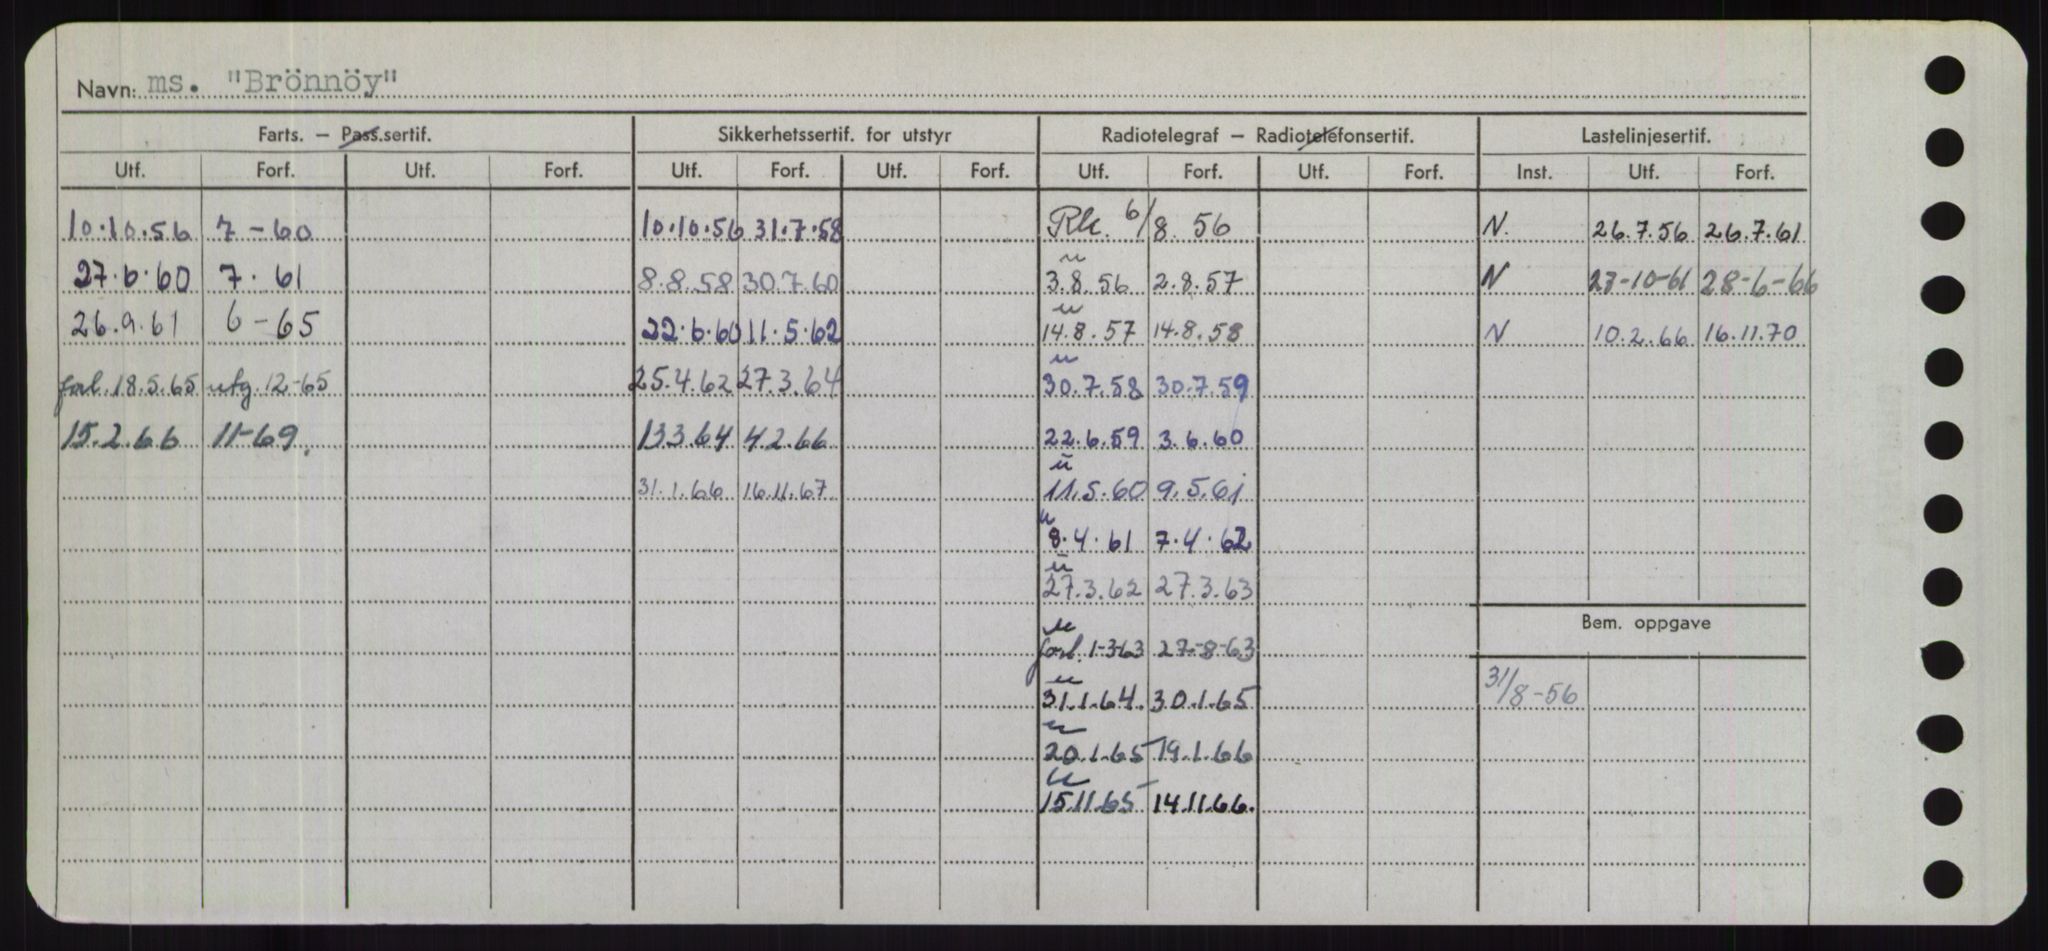 Navn: ms. "Brönnöy"
Farts. — Pass.sertif. Sikkerhetssertif. for utstyr Radiotelegraf — Radiotelefonsertif. Lastelinjesertif.
Utf. Forf. Utf. Forf. Utf. Forf. Utf. Forf. Utf. Forf. Utf. Forf. Inst. Utf. Forf.
10.10.56 7-60 10.10.56 31.7.58 Rk. 6/8. 56 N. 26.7.56 26.7.61
27.6.60 7.61 8.8.58 30.7.60 u 3.8.56 2.8.57 N 27-10-61 28-6-66
26.9.61 6-65 22.6.60 11.5.62 u 14.8.57 14.8.58 N 10.2.66 16.11.70
forl. 18.5.65 utg. 12-65 25.4.62 27.3.64 u 30.7.58 30.7.59
15.2.66 11-69. 13.3.64 4.2.66 22.6.59 3.6.60
31.1.66 16.11.67 u 11.5.60 9.5.61
u 8.4.61 7.4.62
u 27.3.62 27.3.63
Bem. oppgave
u forl. 1-3-63 27-8-63
u 31.1.64. 30.1.65 31/8-56
u 20.1.65 19.1.66
u 15.11.65 14.11.66.